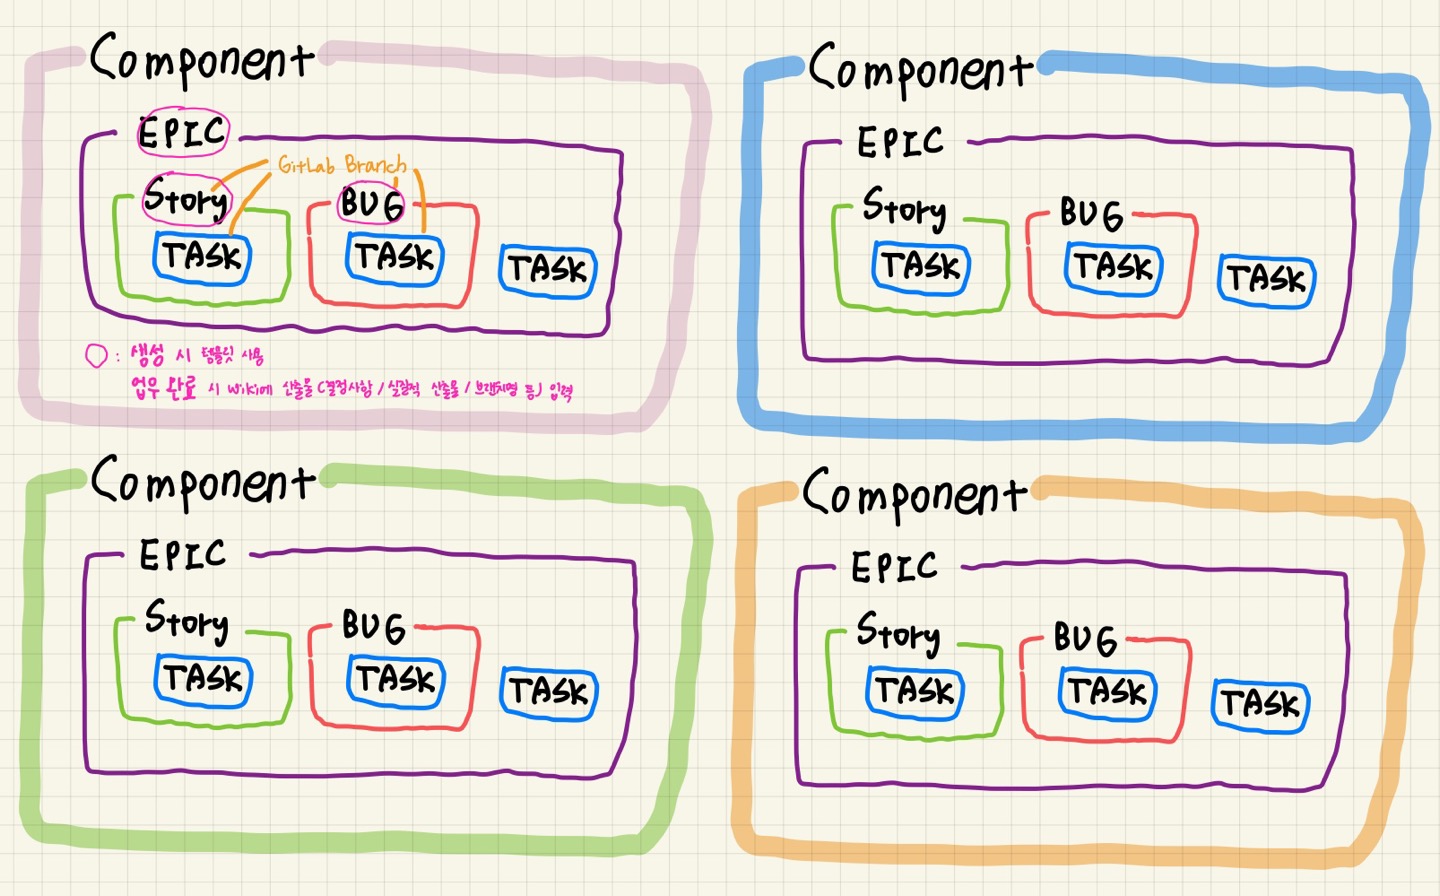 Component
EPIC
GitLab Branch
Story
BUG
TASK
TASK
TASK
○ : 생성 시 템플릿 사용
업무 완료 시 wiki에 산출물 (결정사항 / 실질적 산출물 / 브랜치명 등) 입력
Component
EPIC
Story
BUG
TASK
TASK
TASK
Component
EPIC
Story
BUG
TASK
TASK
TASK
Component
EPIC
Story
BUG
TASK
TASK
TASK